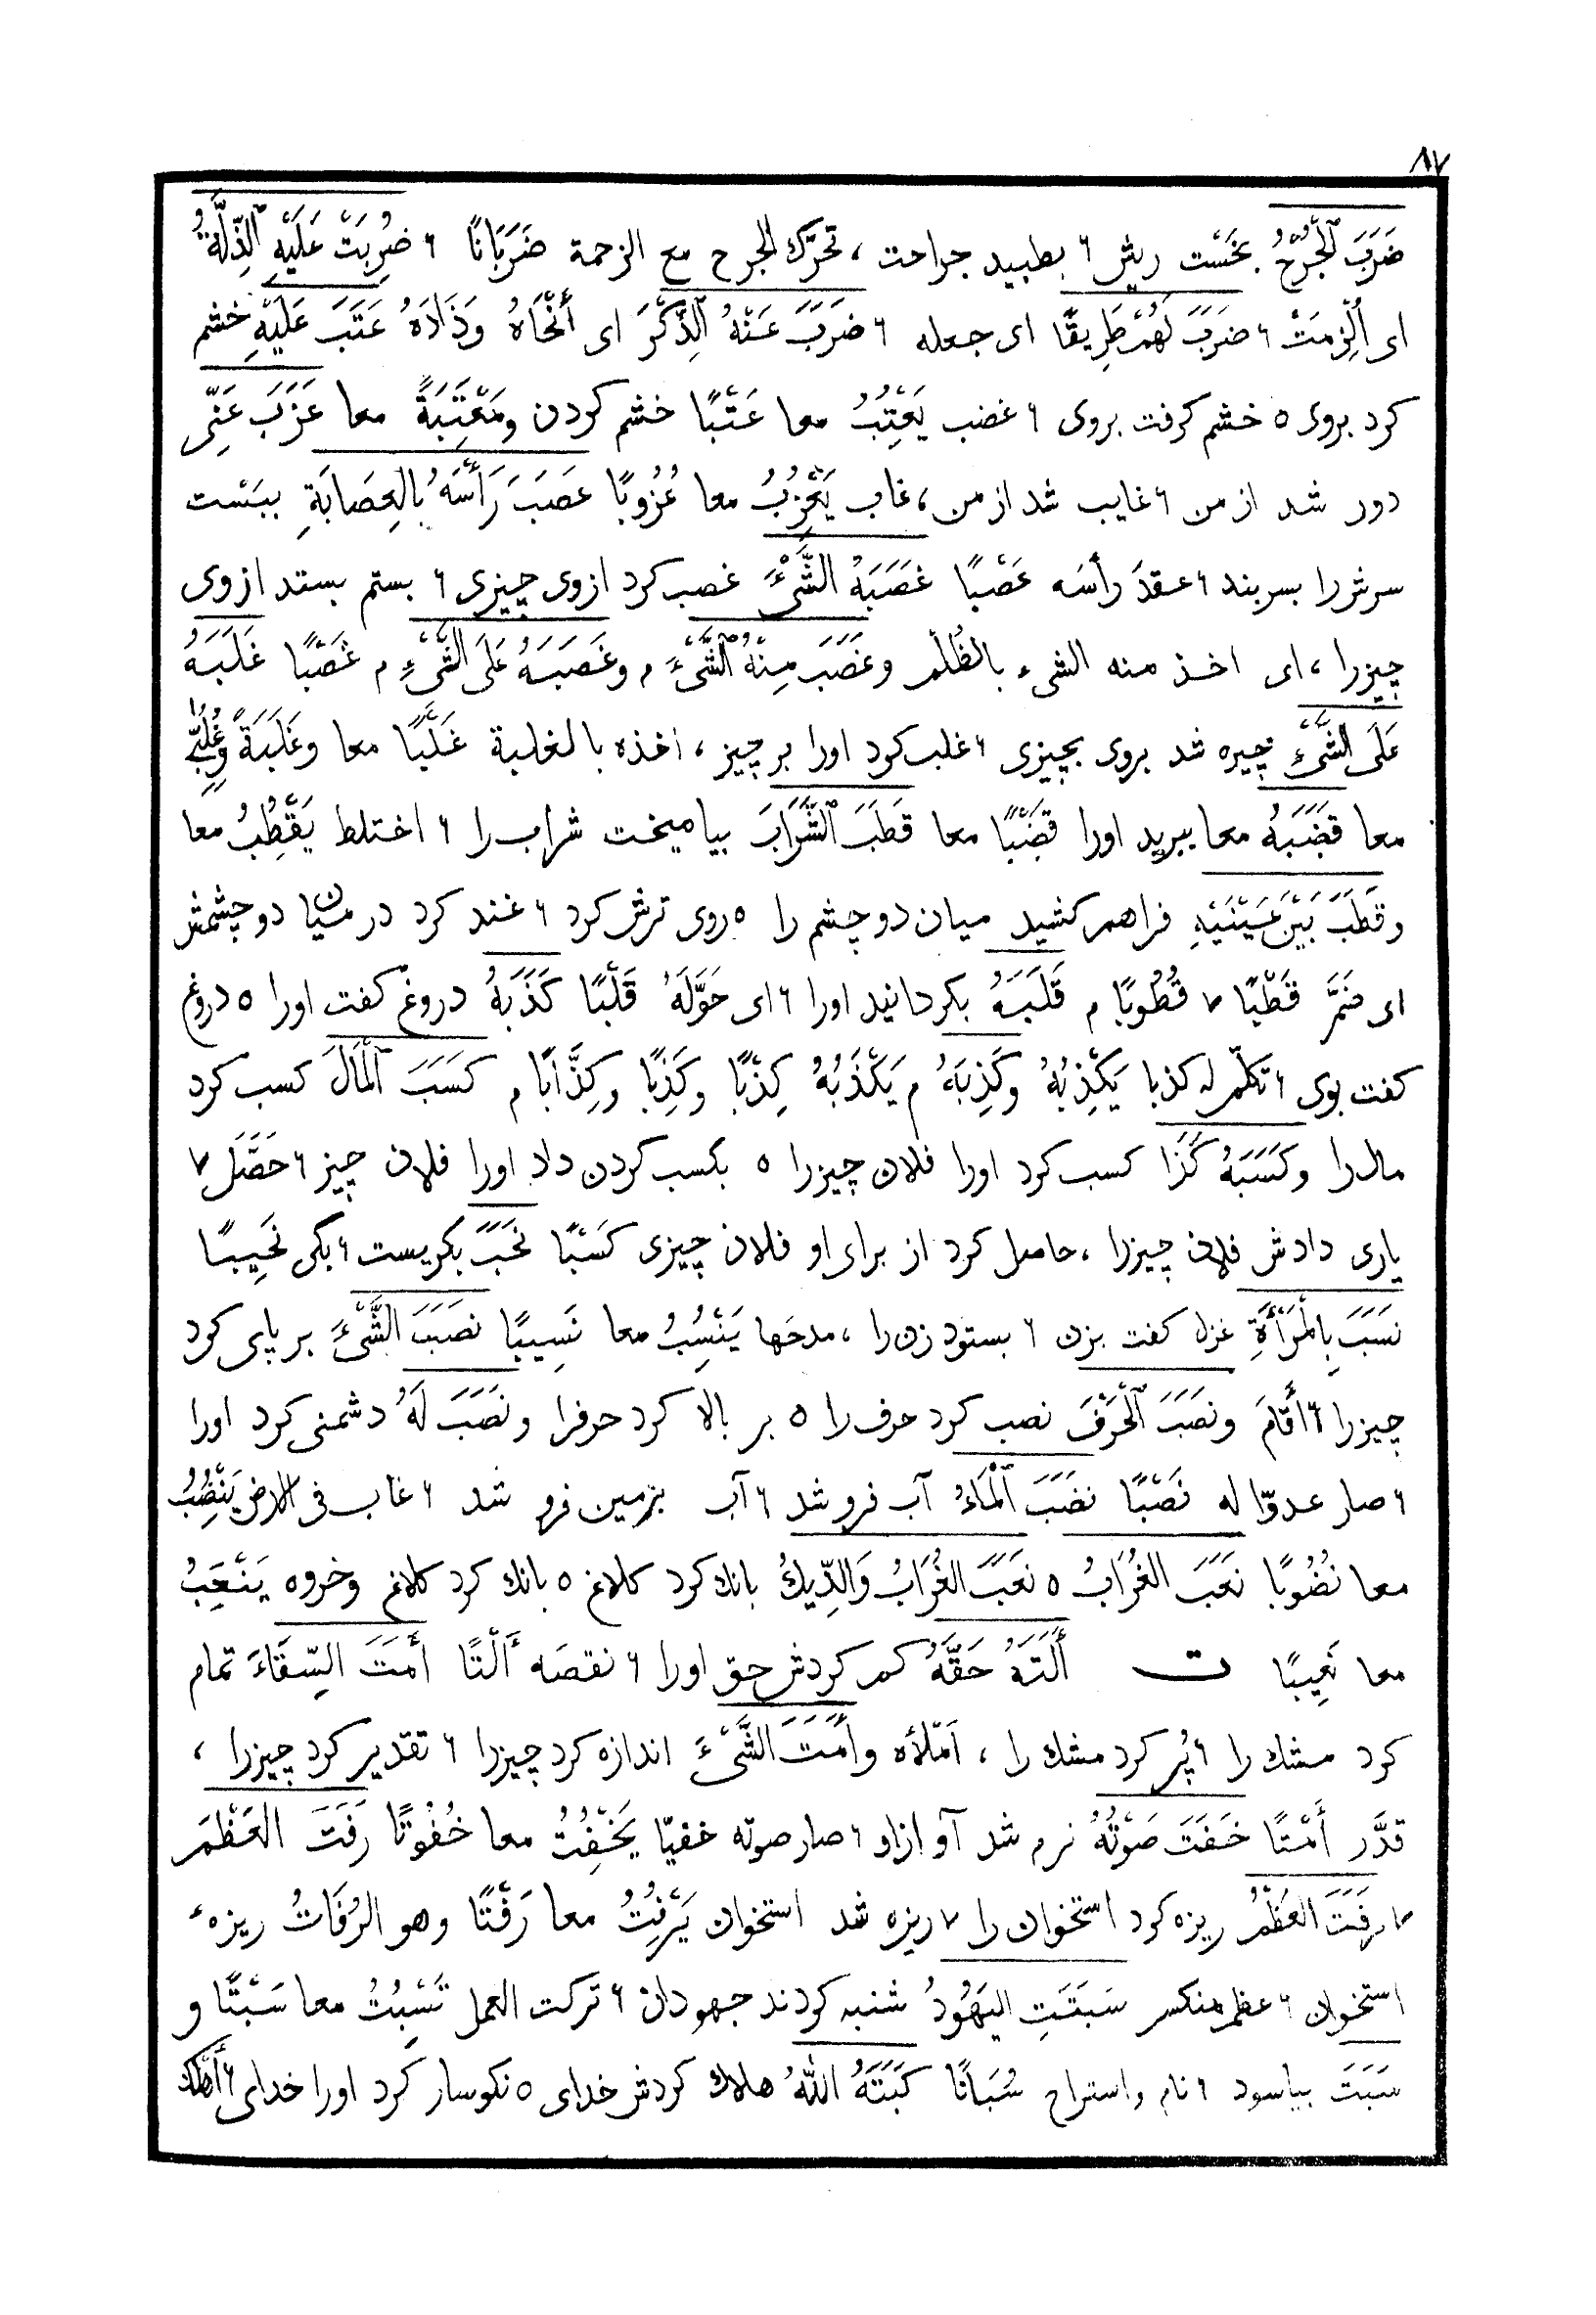 ٨٧
ضَرَبَ ٱلْجُرْحُ بخَسْت ريش ٦ بطبيد جراحت ، تحرّك الجرح مع الزحمة ضَرَبَانًا ٦ ضُرِبَتْ عَلَيْهِ ٱلذِّلَّةُ
اى اُلْزِمَتْ ٦ ضَرَبَ لَهُمْ طَرِيقًا اى جعله ٦ ضَرَبَ عَنْهُ ٱلذِّكْرَ اى أَنْحَاهُ وَذَادَهُ عَتَبَ عَلَيْهِ خشم
كرد بروى ٥ خشم كرفت بروى ٦ غضب يَعْتِبُ معا عَتْبًا خشم كردن ومَعْتِبَةً معا عَزَبَ عَنِّى
دور شد از من ٦ غايب شد از من ، غاب يَعْزِبُ معا عُزُوبًا عَصَبَ رَأْسَهُ بالعِصَابَةِ ببَسْت
سرش را بسربند ٦ عقدَ رأسَه عَصْبًا غَصَبَهُ الشَّىْءَ غصب كرد ازوى چيزى ٦ بستم بستد ازوى
چيزرا ، اى اخذ منه الشىء بالظُلْم وغَصَبَ مِنْهُ ٱلشَّىْءَ م وغَصَبَهُ عَلَى الشَّىْءِ م غَصْبًا غَلَبَهُ
عَلَى الشَّىْءِ چيره شد بروى بچيزى ٦ غلب كرد اورا بر چيز ، اخذه بالغلبة غَلْبًا معا وغَلَبَةً وغُلُبَّى
معا قَضَبَهُ معا ببريد اورا قَضْبًا معا قَطَبَ ٱلشَّرَابَ بياميخت شراب را ٦ اختلط يَقْطِبُ معا
وقَطَبَ بَيْنَ عَيْنَيْهِ فراهم كشيد ميان دو چشم را ٥ روى ترش كرد ٦ غند كرد در ميان دو چشمش
اى ضَمَّ قَطْبًا ٧ قُطُوبًا م قَلَبَهُ بكردانيد اورا ٦ اى حَوَّلَهُ قَلْبًا كَذَبَهُ دروغ كفت اورا ٥ دروغ
كفت بوى ٦ تكلّم له كذبا يَكْذِبُهُ وكَذِبَهُ م يَكْذَبُهُ كِذْبًا وكَذِبًا وكِذَّابًا م كَسَبَ ٱلْمَالَ كسب كرد
مال را وكَسَبَهُ كَذَا كسب كرد اورا فلان چيزرا ٥ بكسب كردن داد اورا فلان چيز ٦ حَصَّلَ ٧
يارى دادش فلان چيزرا ، حاصل كرد از براى او فلان چيزى كَسْبًا نَحَبَ بكريست ٦ بكى نَحِيبًا
نَسَبَ بِالْمَرْأَةِ غزل كفت بزن ٦ بستود زن را ، مدحَها يَنْسِبُ معا نَسِيبًا نَصَبَ الشَّىْءَ بر پاى كرد
چيزرا ٦ اقَامَ ونَصَبَ ٱلْحَرْفَ نصب كرد حرف را ٥ بر بالا كرد حرفرا ونَصَبَ لَهُ دشمنى كرد اورا
٦ صار عدوّا له نَصْبًا نَضَبَ ٱلْمَاءُ آب فرو شد ٦ آب بزمين فرو شد ٦ غاب فى الارض يَنْضِبُ
معا نُضُوبًا نَعَبَ الغُرَابُ ٥ نَعَبَ الغُرَابُ وَالدِّيكُ بانك كرد كلاغ ٥ بانك كرد كلاغ وخروه يَنْعِبُ
معا نَعِيبًا ت أَلَتَهُ حَقَّهُ كم كردش حق اورا ٦ نقصَه أَلْتًا أَمَتَ السِّقَاءَ تمام
كرد مشك را ٦ پُر كرد مشك را ، اَمْلأه وأَمَتَ الشَّىْءَ اندازه كرد چيزرا ٦ تقدير كرد چيزرا ،
قدَّر أَمْتًا خَفَتَ صَوْتُهُ نرم شد آواز او ٦ صار صوته خفيّا يَخْفِتُ معا خُفُوتًا رَفَتَ العَظْمَ
٧ رَفَتَ العَظْمُ ريزه كرد استخوان را ٧ ريزه شد استخوان يَرْفِتُ معا رَفْتًا وهو الرُفَاتُ ريزهء
استخوان ٦ عظم منكسر سَبَتَتِ اليَهُودُ شنبه كردند جهودان ٦ تركت العمل تَسْبِتُ معا سَبْتًا و
سَبَتَ بياسود ٦ نام واستراح سُبَاتًا كَبَتَهُ اللهُ هلاك كردش خداى ٥ نكوسار كرد اورا خداى ٦ أَهْلَكَ